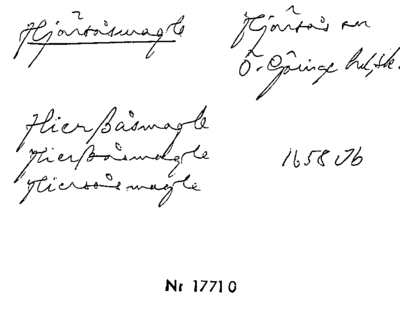 Hjärsåsmagle
Hjärsås sn
Ö. Göinge hd, Sk.
Hierßåsmagle
Hierßåsmagle
Hiersåsmagle
1658 Jb
Nr 17710